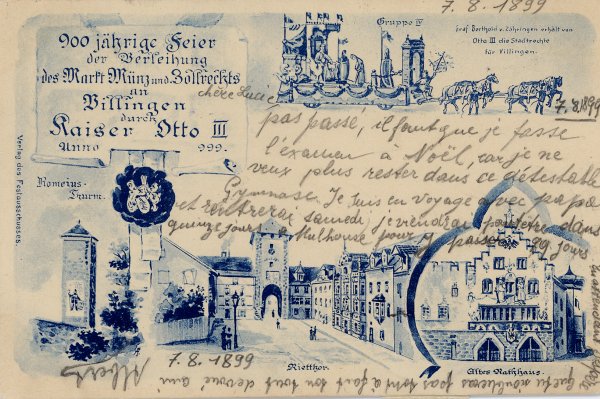 7. 8. 1899
900 jährige Feier
der Verleihung
des Markt Münz und Zollrechts
an
Villingen
durch
Kaiser Otto III
Anno 999.
Gruppe IV
Graf Berthold v. Zähringen erhält von
Otto III die Stadtrechte
für Villingen.
7. 8. 1899
chère Lucie
pas passé, il faut que je fasse
l'examen à Noël, car je ne
veux plus rester dans ce détestable
Gymnase. Je suis en voyage avec papa
et rentrerai samedi, je viendrai peut-être dans
quinze jours à Mulhouse pour y passer jours
Romeius-
Thurm.
Verlag des Festausschusses.
7. 8. 1899
Albert
Rietthor.
Altes Rathhaus.
pas tout à fait ton tout dévoué ami